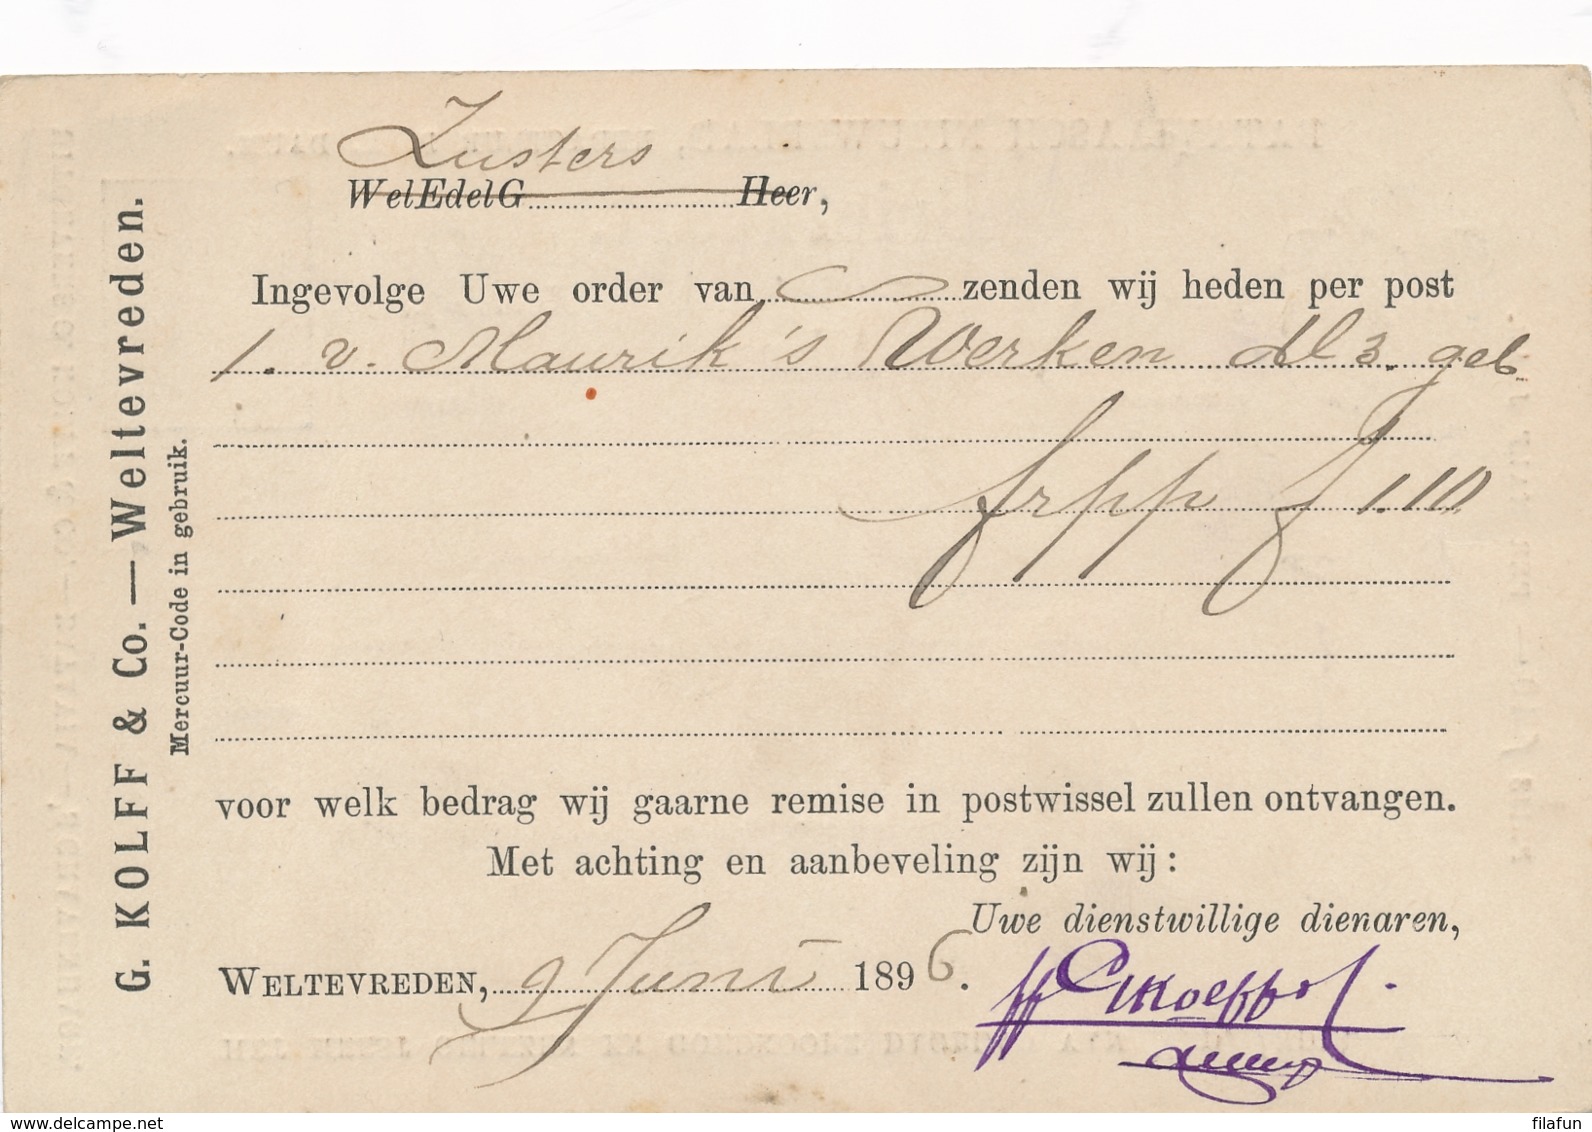 Zusters
WelEdelG.....................Heer,
Ingevolge Uwe order van....................zenden wij heden per post
1. v. Maurik's Werken dl 3. geb.
frpp f 1.10
voor welk bedrag wij gaarne remise in postwissel zullen ontvangen.
Met achting en aanbeveling zijn wij:
Uwe dienstwillige dienaren,
WELTEVREDEN, 9 Juni 1896.
G. KOLFF & Co. — Weltevreden.
Mercuur-Code in gebruik.
www.delcampe.net
filafun